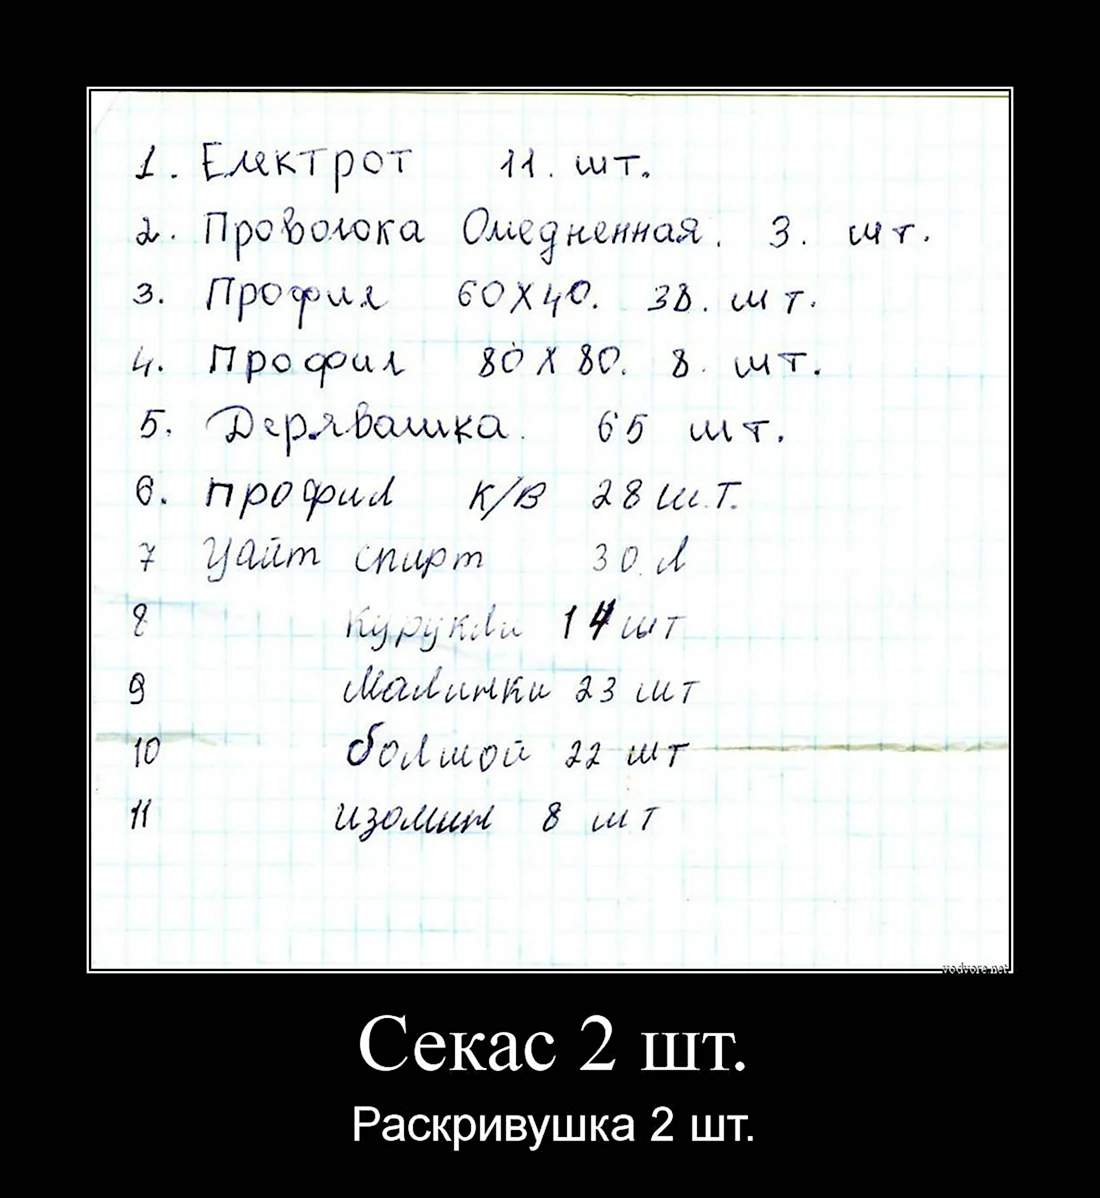 1. Електрот 11. шт.
2. Проволока Омедненная. 3. шт.
3. Профил 60X40. 38. шт.
4. Профил 80X80. 8. шт.
5. Дерявашка. 65 шт.
6. профил к/в 28 ш.т.
7 Уайт спирт 30 л
8 курукли 14 шт
9 малинки 23 шт
10 болшой 22 шт
11 изомин 8 шт
vodvore.net
Секас 2 шт.
Раскривушка 2 шт.